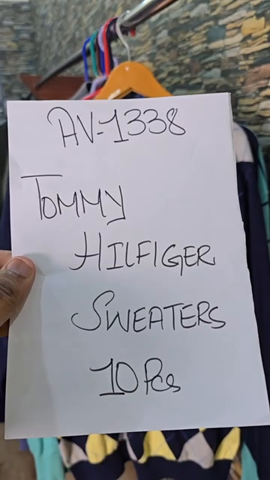 AV-1338
TOMMY
HILFIGER
SWEATERS
10 Pcs